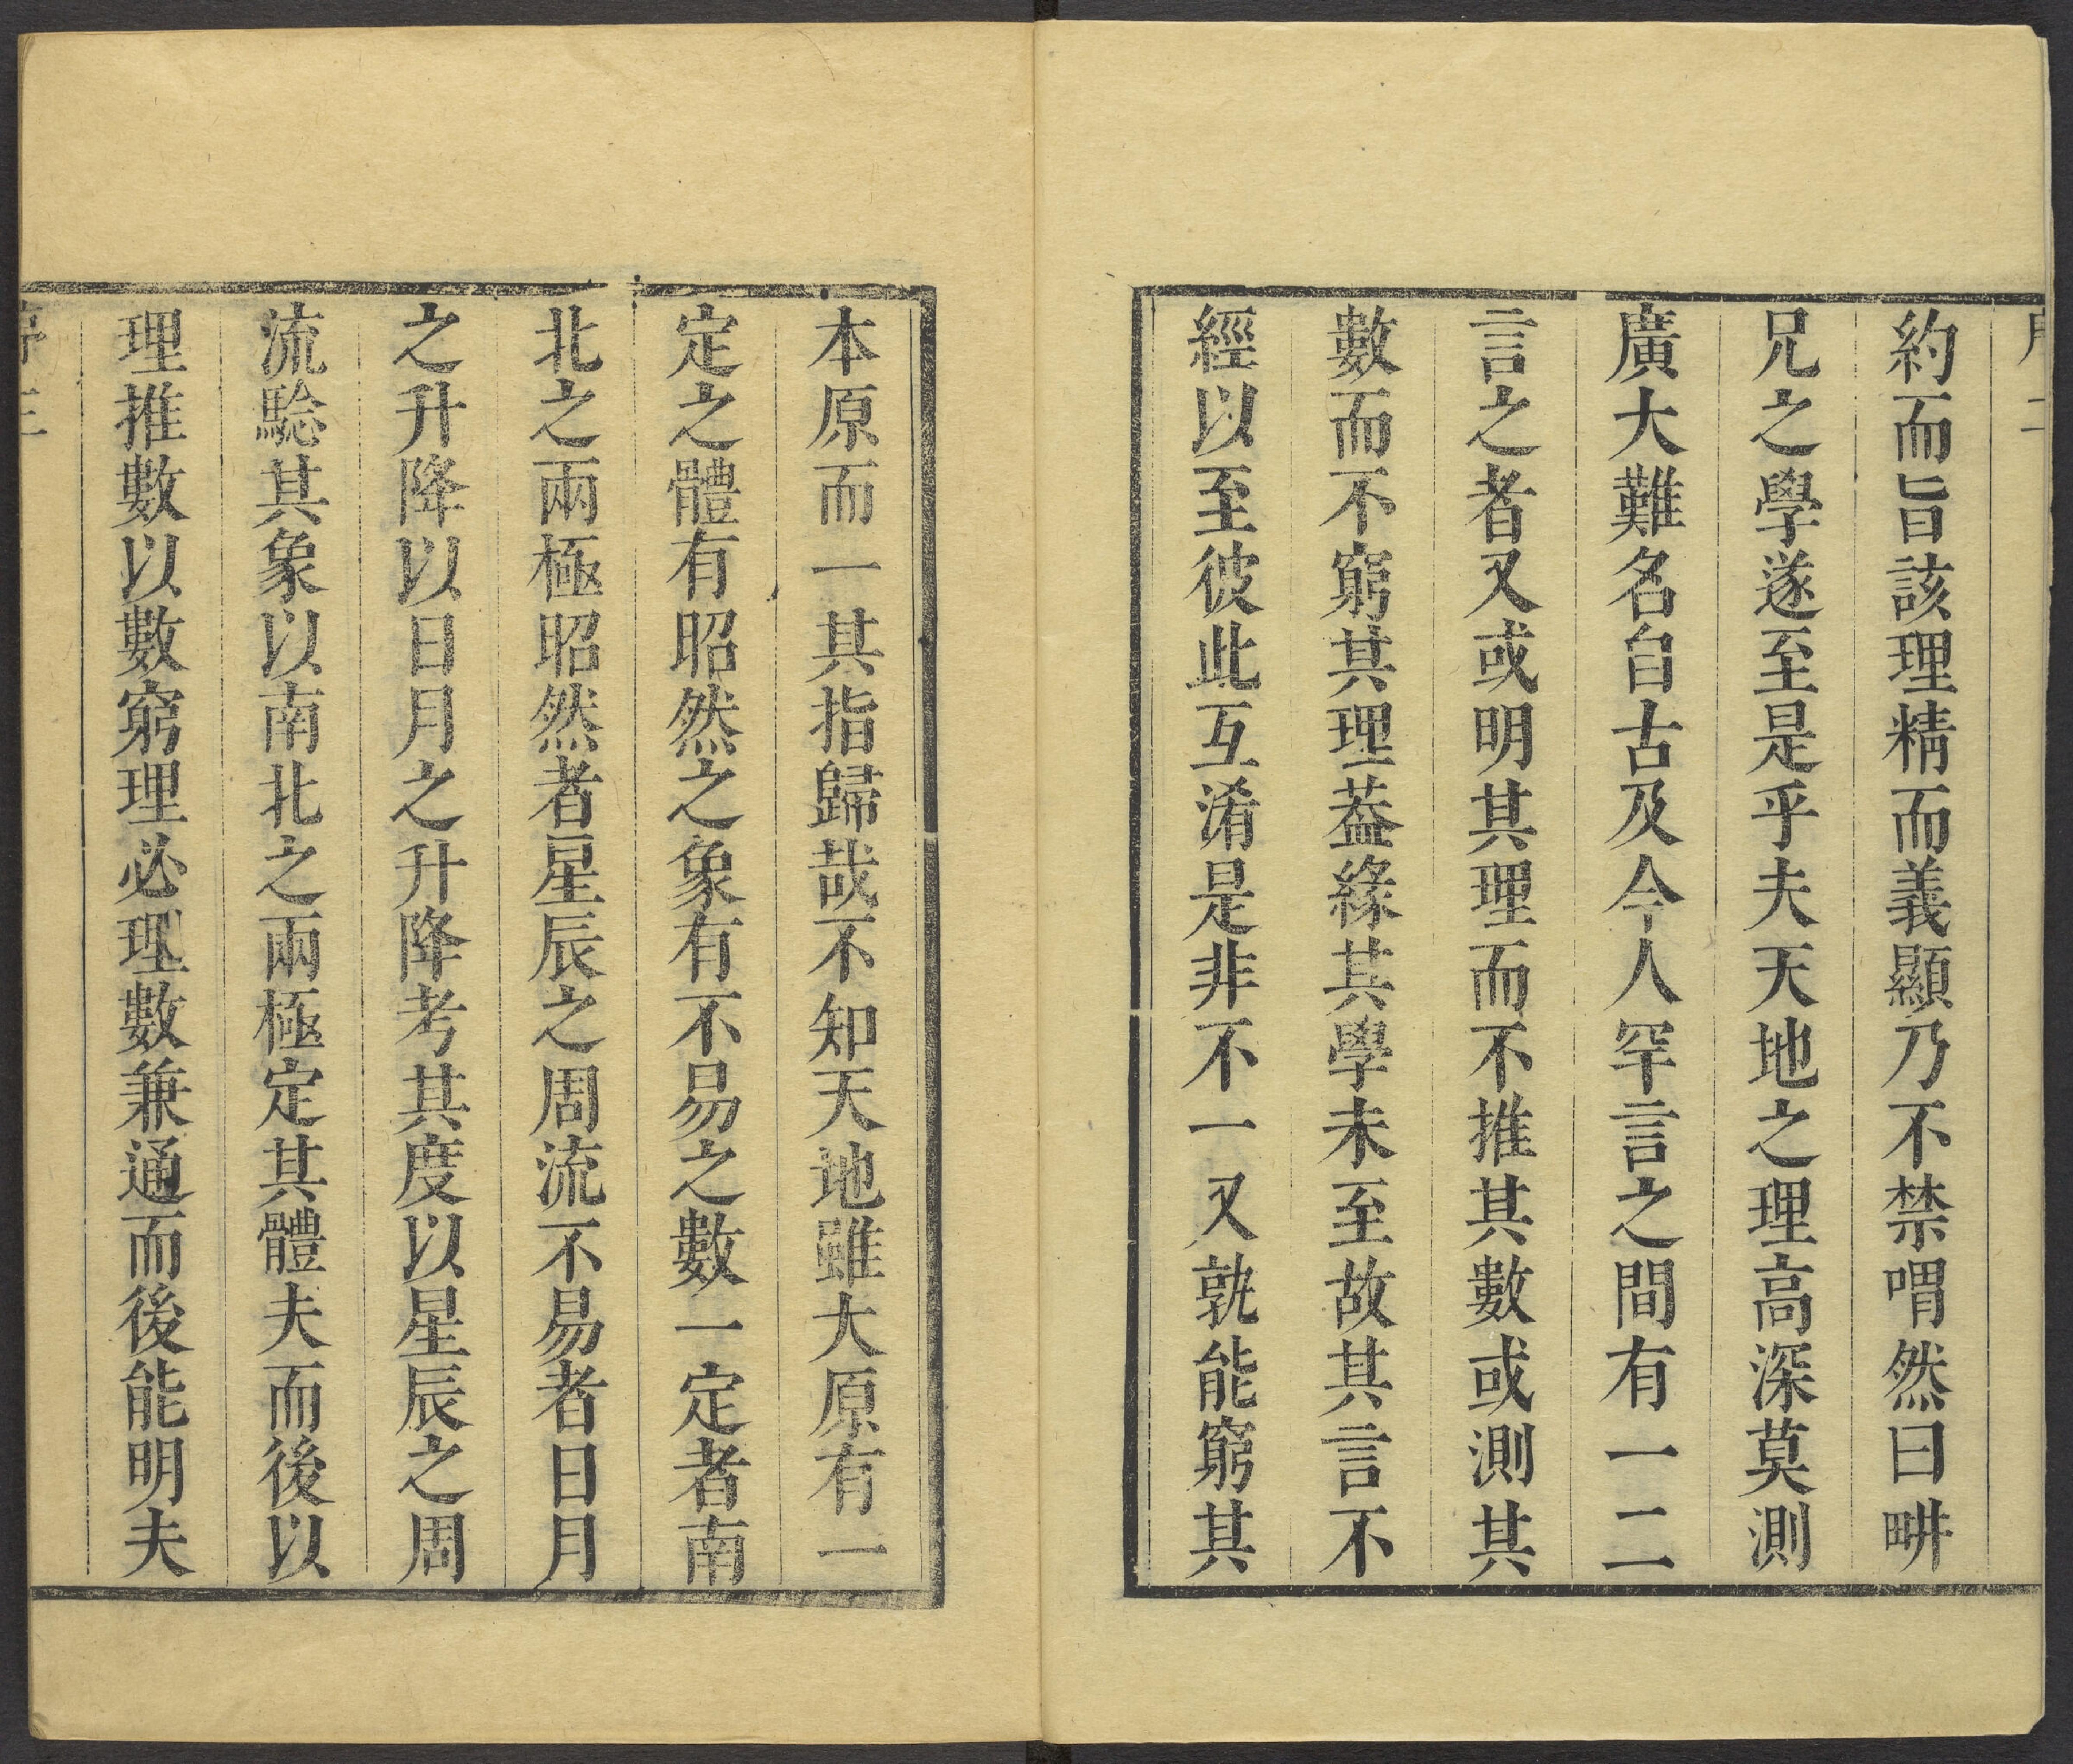 約而旨該理精而義顯乃不禁喟然曰畊
兄之學遂至是乎夫天地之理高深莫測
廣大難名自古及今人罕言之間有一二
言之者又或明其理而不推其數或測其
數而不窮其理葢緣其學未至故其言不
經以至彼此互淆是非不一又孰能窮其
本原而一其指歸哉不知天地雖大原有一
定之體有昭然之象有不易之數一定者南
北之兩極昭然者星辰之周流不易者日月
之升降以日月之升降考其度以星辰之周
流騐其象以南北之兩極定其體夫而後以
理推數以數窮理必理數兼通而後能明夫
序三